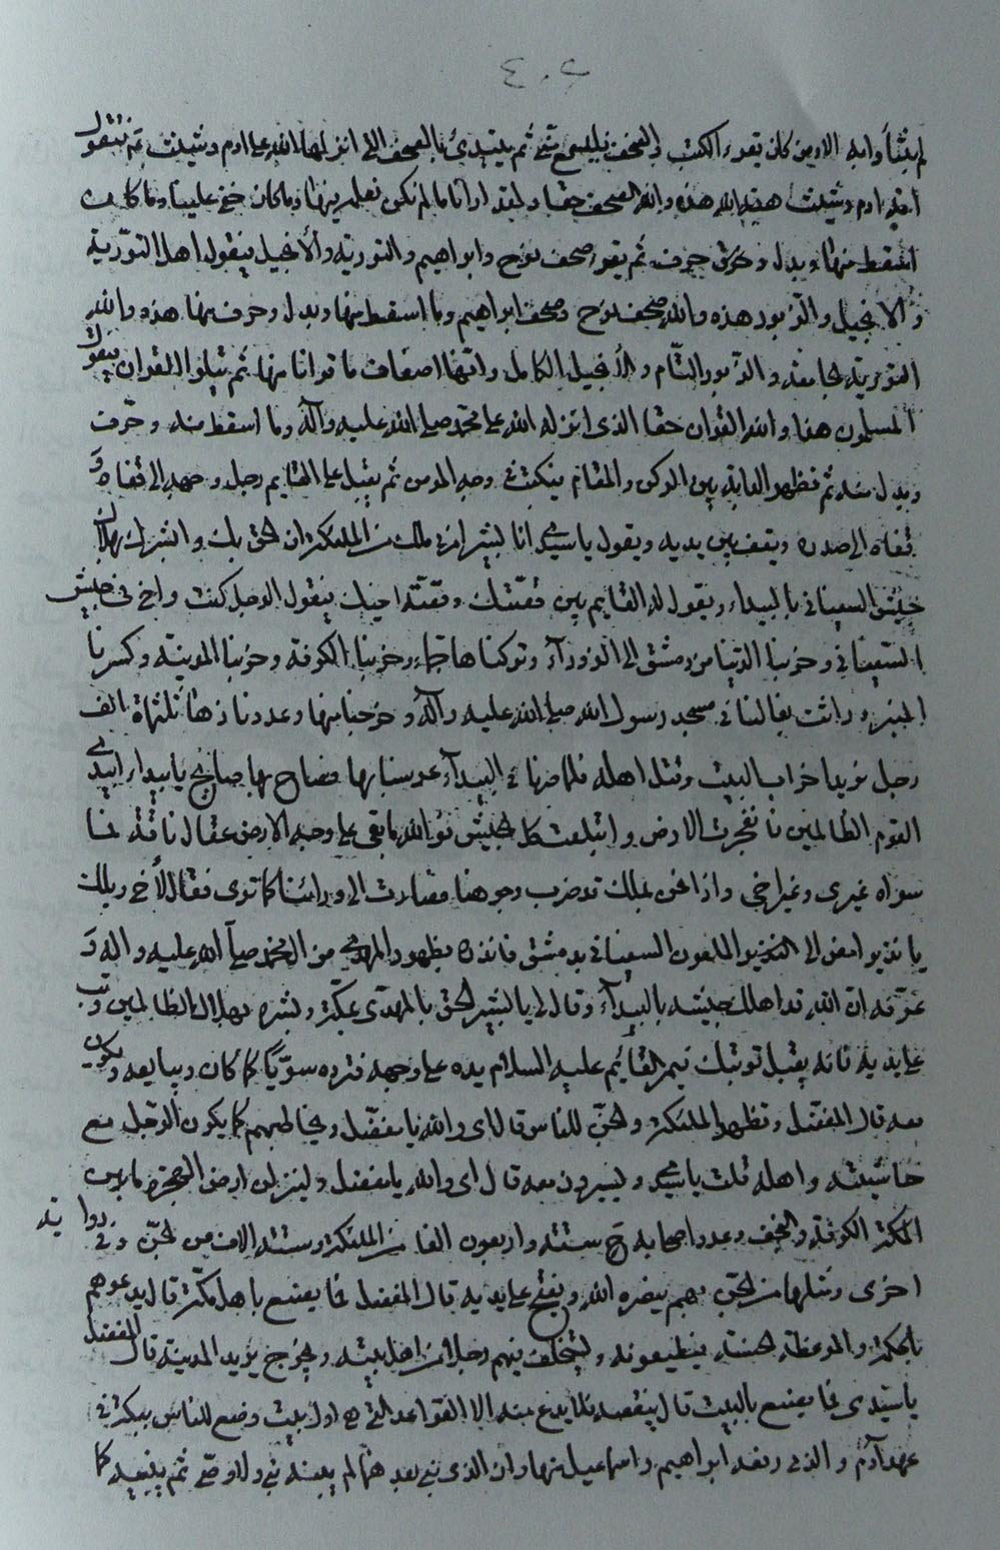 ٤٠٦
ومن كان يقرء الكتب و الصحف فليسمع منى ثم يبتدئ بالصحف التى انزلها الله على ادم وشيث ثم تقول
امة ادم وشيث هبة الله هذه والله الصحف حقا ولقد ارانا ما لم نكن نعلمه منها وما كان خفى علينا وما كان
اسقط منها وبدل وحرف ثم يقرء صحف نوح وابراهيم والتورية والانجيل فيقول اهل التورية
والانجيل والزبور هذه والله صحف نوح وصحف ابراهيم وما اسقط منها وبدل وحرف منها هذه والله
التورية الجامعة والزبور التام والانجيل الكامل وانها اضعاف ما قرانا منها ثم يتلو القران فيقول
المسلمون هذا والله القران حقا الذى انزله الله على محمد صلى الله عليه وآله وما اسقط منه وحرف
وبدل منه ثم تظهر الدابة بين الركن والمقام فيكتب فى وجه المومن ثم يقبل على القايم رجل وجهه الى قفاه و
قفاه الى صدره ويقف بين يديه ويقول يا سيدى انا بشير امرنى ملك من الملئكة ان الحق بك وابشرك بهلاك
جيش السفيانى بالبيداء ويقول له القايم بين قصتك وقصة اخيك فيقول الرجل كنت واخى فى جيش
السفيانى وخربنا الدنيا من دمشق الى الزوراء وتركناها جماء وخربنا الكوفة وخربنا المدينة وكسرنا
المنبر وراثت بغالنا فى مسجد رسول الله صلى الله عليه وآله وخرجنا منها وعددنا ثلثماة الف
رجل نريد اخراب البيت وقتل اهله فلما صرنا فى البيداء عرسنا بها فصاح بها صايح يا بيداء ابيدى
القوم الظالمين فانفجرت الارض وابتلعت كل الجيش فو الله ما بقى على وجه الارض عقال ناقة فما
سواه غيرى وغير اخى واذا نحن بملك قد ضرب وجوهنا فصارت الى وراءنا كما ترى فقال لاخى ويلك
يا نذير امض الى الملعون السفيانى بدمشق فانذره بظهور المهدى من ال محمد صلى الله عليه واله و
عرفه ان الله قد اهلك جيشه بالبيداء وقال لى يا بشير الحق بالمهدى بمكة وبشره بهلاك الظالمين وتب
على يديه فانه يقبل توبتك فيمر القايم عليه السلام يده على وجهه فترده سويا كما كان ويبايعه ويكون
معه قال المفضل وتظهر الملئكة والجن للناس قال اى والله يا مفضل ويخاطبهم كما يكون الرجل مع
حاشيته واهله قلت يا سيدى ويسيرون معه قال اى والله يا مفضل ولينزلن ارض الهجرة ما بين
الكوفة والنجف وعدد اصحابه ح ستة واربعون الفا من الملئكة وستة الاف من الجن وفى رواية
اخرى ومثلها من الجن بهم ينصره الله ويفتح على يديه قال المفضل فما يصنع باهل مكة قال يدعوهم
بالحكمة والموعظة الحسنة فيطيعونه ويستخلف فيهم رجلا من اهل بيته ويخرج يريد المدينة قال المفضل
يا سيدى فما يصنع بالبيت قال ينقضه فلا يدع منه الا القواعد التى هى اول بيت وضع للناس ببكة فى
عهد آدم والذى رفعه ابراهيم واسماعيل منها وان الذى بنى بعدهما لم يبنه نبى ولا وصى ثم يبنيه كما